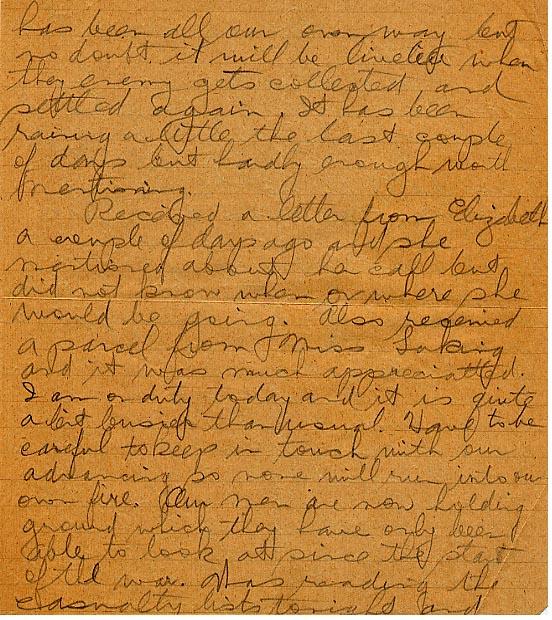 has been all our own way but
no doubt it will be livelier when
they enemy gets collected and
settled again. It has been
raining a little the last couple
of days but hardly enough worth
mentioning.
Received a letter from Elizabeth
a couple of days ago and she
mentioned about her call but
did not know when or where she
would be going. Also received
a parcel from Miss Laking
and it was much appreciated.
I am on duty today and it is quite
a bit busier than usual. Have to be
careful to keep in touch with our
advancing so none will run into our
own fire. Our men are now holding
ground which they have only been
able to look at since the start
of the war. Was reading the
casualty lists tonight and